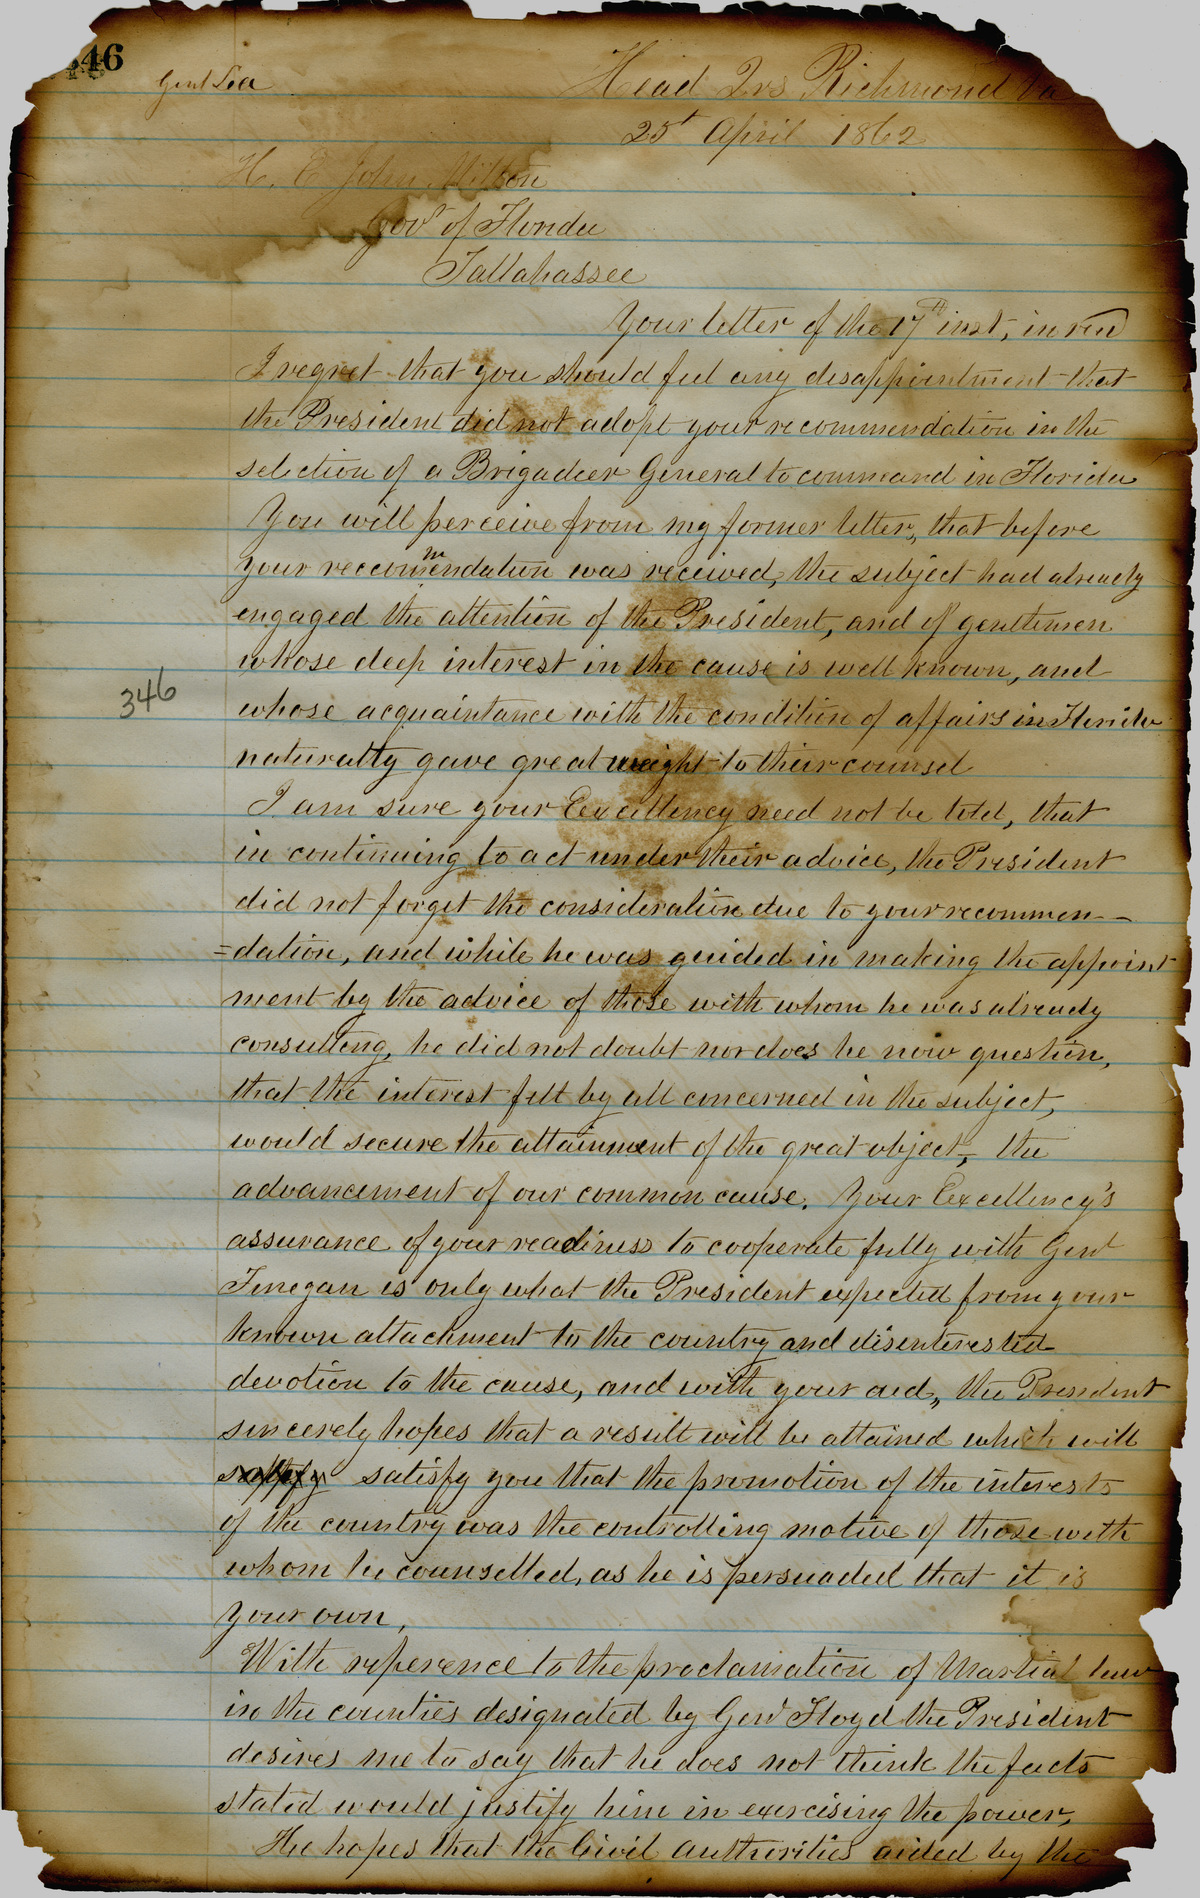 346
Genl Lee
Head Qrs Richmond Va
25t April 1862
H. E. John Milton
Govr of Florida
Tallahassee
Your letter of the 17th inst, is recd
I regret that you should feel any disappointment that
the President did not adopt your recommendation in the
selection of a Brigadeer General to command in Florida
You will perceive from my former letter, that before
your reccommendation was received, the subject had already
engaged the attention of the President, and of gentlemen
whose deep interest in the cause is well known, and
346
whose acquaintance with the condition of affairs in Florida
naturally gave great weight to their counsel
I am sure your Excellency need not be told, that
in continuing to act under their advice, the President
did not forget the consideration due to your recommen-
=dation, and while he was guided in making the appoint
ment by the advice of those with whom he was already
consulting, he did not doubt nor does he now question,
that the interest felt by all concerned in the subject,
would secure the attainment of the great object, the
advancement of our common cause. Your Excellency's
assurance of your readiness to cooperate fully with Genl
Finegan is only what the President expected from your
known attachment to the country and disinterested
devotion to the cause, and with your aid, the President
sincerely hopes that a result will be attained which will
satisfy you that the promotion of the interests
of the country was the controlling motive of those with
whom he counselled, as he is persuaded that it is
your own,
With reference to the proclamation of Martial law
in the counties designated by Genl Floyd the President
desires me to say that he does not think the facts
stated would justify him in exercising the power,
He hopes that the Civil authorities aided by the